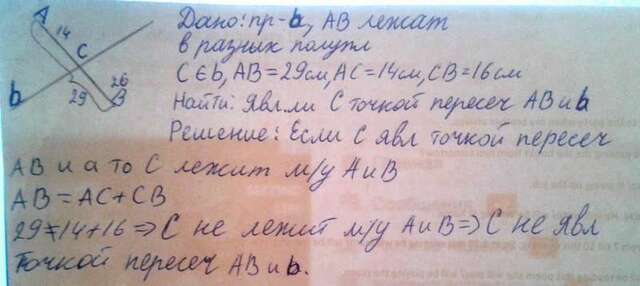 A
14
C
26
29
B
b
Дано: пр-b, AB лежат
в разных полупл
C∈b, AB=29см, AC=14см, CB=16см
Найти: Явл. ли C точкой пересеч AB и b
Решение: Если C явл точкой пересеч
AB и a то C лежит м/у A и B
AB = AC + CB
29≠14+16 ⇒ C не лежит м/у A и B ⇒ C не явл
точкой пересеч AB и b.